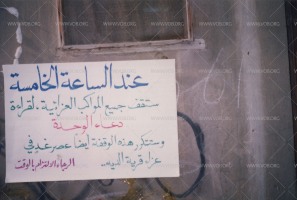 عند الساعة الخامسة
ستقف جميع المواكب العزائية لقراءة
دعاء الوحدة
وستتكرر هذه الوقفة أيضا عصر غد في
عزاء قرية الديه..
الرجاء الالتزام بالوقت